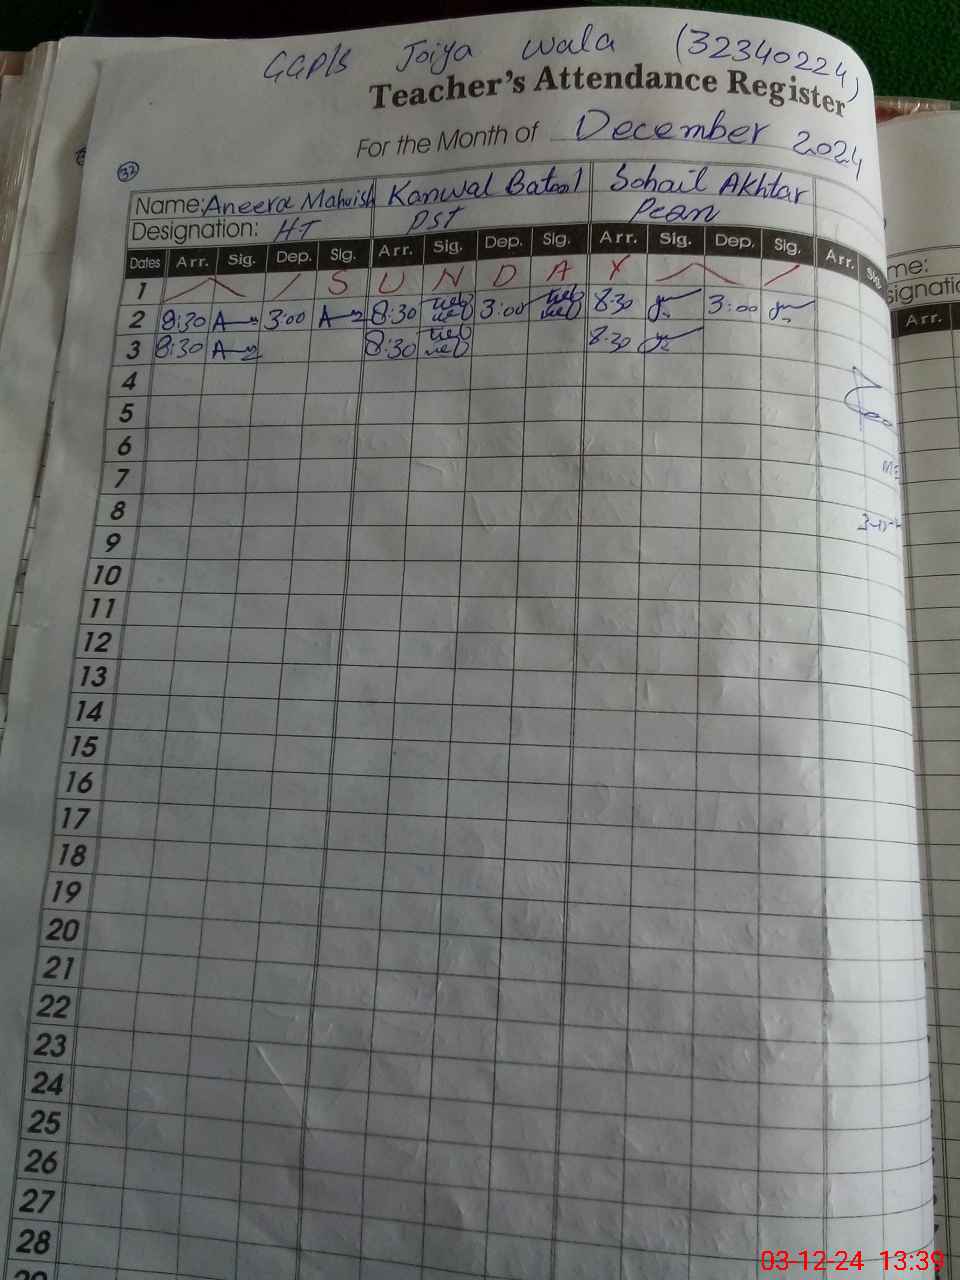 GGP/S Joiya Wala (32340224)
Teacher's Attendance Register
For the Month of December 2024
37
Name: Aneera Mahwish Kanwal Batool Sohail Akhtar
Designation: HT PST Pean
Dates Arr. Sig. Dep. Sig. Arr. Sig. Dep. Sig. Arr. Sig. Dep. Sig. Arr. Sig.
1 S U N D A Y
2 8:30 3:00 8:30 3:00 8:30 3:00
3 8:30 8:30 8:30
4
5
6
7
8
9
10
11
12
13
14
15
16
17
18
19
20
21
22
23
24
25
26
27
28
29
me:
signatio
Arr.
03-12-24 13:39